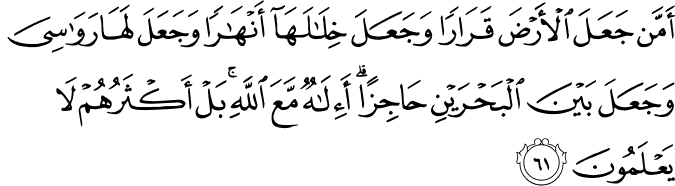 أَمَّن جَعَلَ ٱلْأَرْضَ قَرَارًا وَجَعَلَ خِلَٰلَهَآ أَنْهَٰرًا وَجَعَلَ لَهَا رَوَٰسِىَ
وَجَعَلَ بَيْنَ ٱلْبَحْرَيْنِ حَاجِزًا ۗ أَءِلَٰهٌ مَّعَ ٱللَّهِ ۚ بَلْ أَكْثَرُهُمْ لَا
يَعْلَمُونَ ٦١